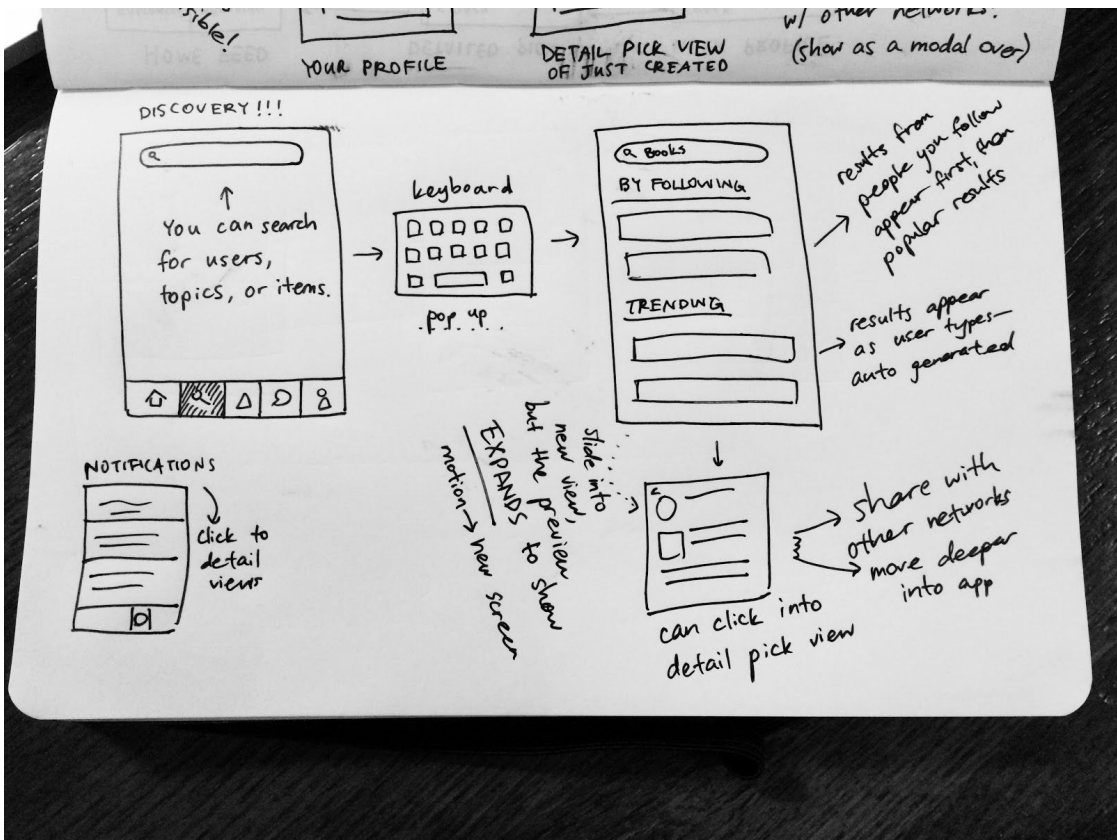 sible!
YOUR PROFILE
DETAIL PICK VIEW
OF JUST CREATED
w/ other networks.
(show as a modal over)
DISCOVERY!!!
You can search
for users,
topics, or items.
keyboard
pop up
Books
BY FOLLOWING
TRENDING
results from
people you follow
appear first, then
popular results
results appear
as user types—
auto generated
NOTIFICATIONS
click to
detail
views
slide into
new view,
but the preview
EXPANDS to show
motion → new screen
can click into
detail pick view
share with
other networks
more deeper
into app